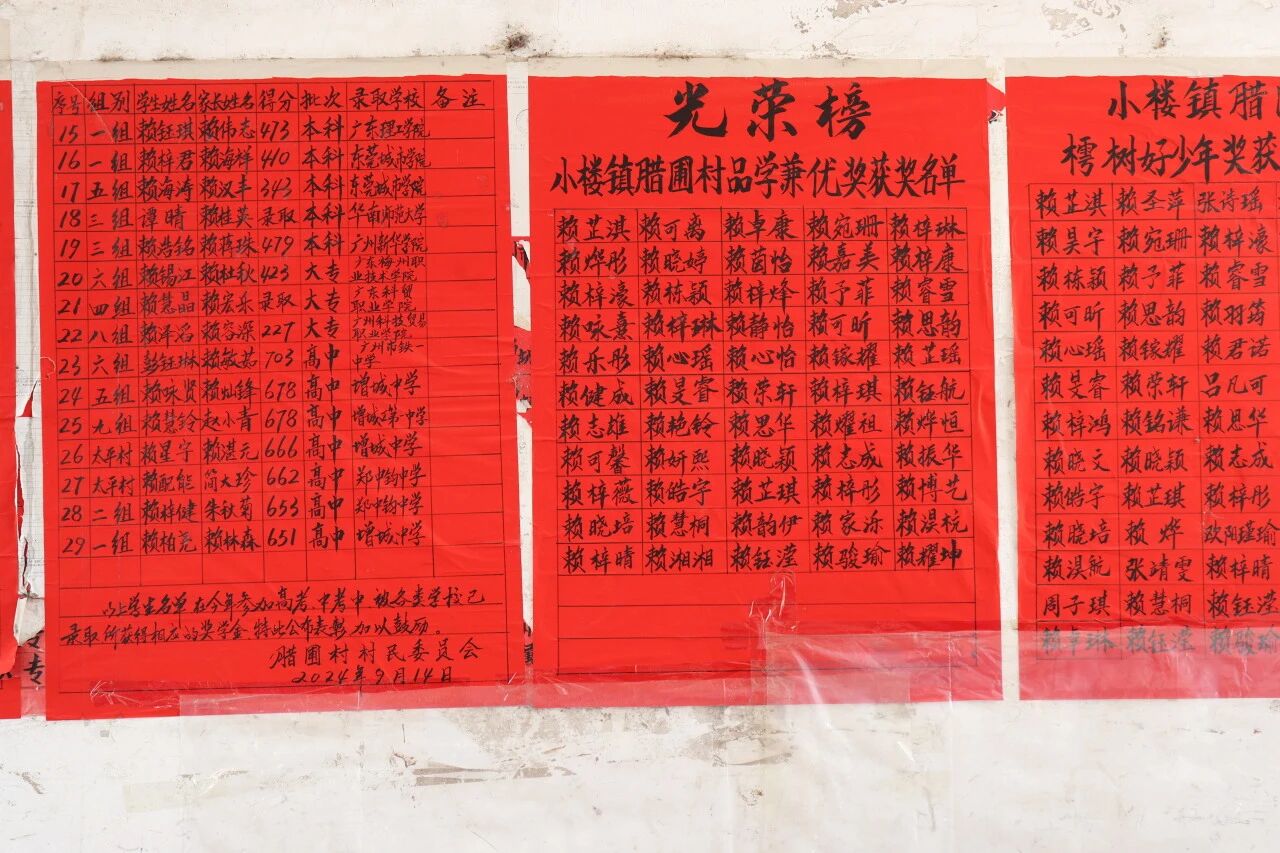 序号 组别 学生姓名 家长姓名 得分 批次 录取学校 备注
15 一组 赖钰琪 赖伟志 473 本科 广东理工学院
16 一组 赖梓君 赖海祥 410 本科 东莞城市学院
17 五组 赖海涛 赖汉丰 343 本科 东莞城市学院
18 三组 谭晴 赖桂英 录取 本科 华南师范大学
19 三组 赖浩铭 赖蒋珠 479 本科 广州新华学院
20 六组 赖锡江 赖杜秋 423 大专 广东梅州职业技术学院
21 四组 赖慧晶 赖宏乐 录取 大专 广东科贸职业学院
22 八组 赖泽滔 赖容深 227 大专 广州科技贸易职业学院
23 六组 彭钰琳 赖敏茹 703 高中 广州市铁一中学
24 五组 赖咏贤 赖灿锋 678 高中 增城中学
25 九组 赖慧铃 赵小青 678 高中 增城第一中学
26 太平村 赖星宇 赖湛元 666 高中 增城中学
27 太平村 赖配能 简大珍 662 高中 郑中钧中学
28 二组 赖梓健 朱秋菊 653 高中 郑中钧中学
29 一组 赖柏尧 赖林森 651 高中 增城中学
以上学生名单在今年参加高考、中考中被各类学校已
录取所获得相应的奖学金,特此公布表彰加以鼓励。
腊圃村村民委员会
2024年9月14日
光荣榜
小楼镇腊圃村品学兼优奖获奖名单
赖芷淇 赖可离 赖卓康 赖宛珊 赖梓琳
赖烨彤 赖晓婷 赖茵怡 赖嘉美 赖梓康
赖梓濠 赖栋颖 赖梓烽 赖予菲 赖睿雪
赖咏熹 赖梓琳 赖静怡 赖可昕 赖思韵
赖乐彤 赖心瑶 赖心怡 赖镓耀 赖芷瑶
赖健成 赖旻睿 赖荣轩 赖梓琪 赖钰航
赖志雄 赖艳铃 赖思华 赖耀祖 赖烨恒
赖可馨 赖妍熙 赖晓颖 赖志成 赖振华
赖梓薇 赖皓宇 赖芷琪 赖梓彤 赖博艺
赖晓培 赖慧桐 赖韵伊 赖家泺 赖淏杭
赖梓晴 赖湘湘 赖钰滢 赖骏瑜 赖耀坤
小楼镇腊
樗树好少年奖获
赖芷淇 赖圣萍 张诗瑶
赖昊宇 赖宛珊 赖梓濠
赖栋颖 赖予菲 赖睿雪
赖可昕 赖思韵 赖羽筠
赖心瑶 赖镓耀 赖君诺
赖旻睿 赖荣轩 吕凡可
赖梓鸿 赖铭谦 赖思华
赖晓文 赖晓颖 赖志成
赖皓宇 赖芷琪 赖梓彤
赖晓培 赖烨 欧阳瑾瑜
赖淏航 张靖雯 赖梓晴
周子琪 赖慧桐 赖钰滢
赖卓琳 赖钰滢 赖骏瑜
专